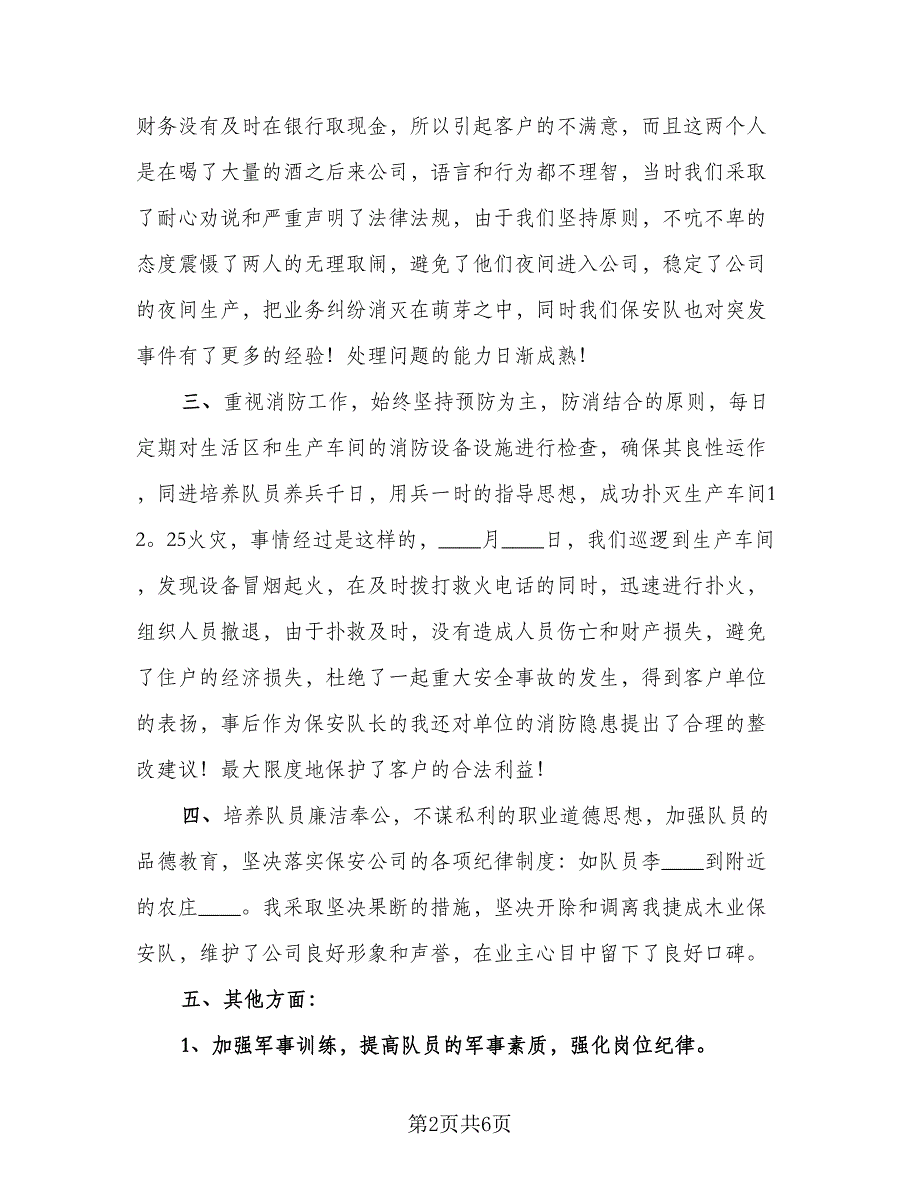 财务没有及时在银行取现金，所以引起客户的不满意，而且这两个人
是在喝了大量的酒之后来公司，语言和行为都不理智，当时我们采取
了耐心劝说和严重声明了法律法规，由于我们坚持原则，不吭不卑的
态度震慑了两人的无理取闹，避免了他们夜间进入公司，稳定了公司
的夜间生产，把业务纠纷消灭在萌芽之中，同时我们保安队也对突发
事件有了更多的经验！处理问题的能力日渐成熟！
三、重视消防工作，始终坚持预防为主，防消结合的原则，每日
定期对生活区和生产车间的消防设备设施进行检查，确保其良性运作
，同进培养队员养兵千日，用兵一时的指导思想，成功扑灭生产车间1
2。25火灾，事情经过是这样的，____月____日，我们巡逻到生产车间
，发现设备冒烟起火，在及时拨打救火电话的同时，迅速进行扑火，
组织人员撤退，由于扑救及时，没有造成人员伤亡和财产损失，避免
了住户的经济损失，杜绝了一起重大安全事故的发生，得到客户单位
的表扬，事后作为保安队长的我还对单位的消防隐患提出了合理的整
改建议！最大限度地保护了客户的合法利益！
四、培养队员廉洁奉公，不谋私利的职业道德思想，加强队员的
品德教育，坚决落实保安公司的各项纪律制度：如队员李____到附近
的农庄____。我采取坚决果断的措施，坚决开除和调离我捷成木业保
安队，维护了公司良好形象和声誉，在业主心目中留下了良好口碑。
五、其他方面：
1、加强军事训练，提高队员的军事素质，强化岗位纪律。
第2页共6页